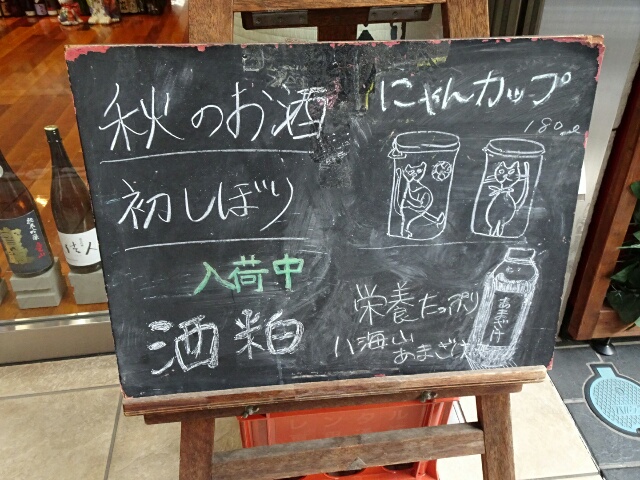 秋のお酒
初しぼり
入荷中
酒粕
にゃんカップ
180ml
栄養たっぷり
八海山
あまざけ
あまざけ
佳人
レンタル